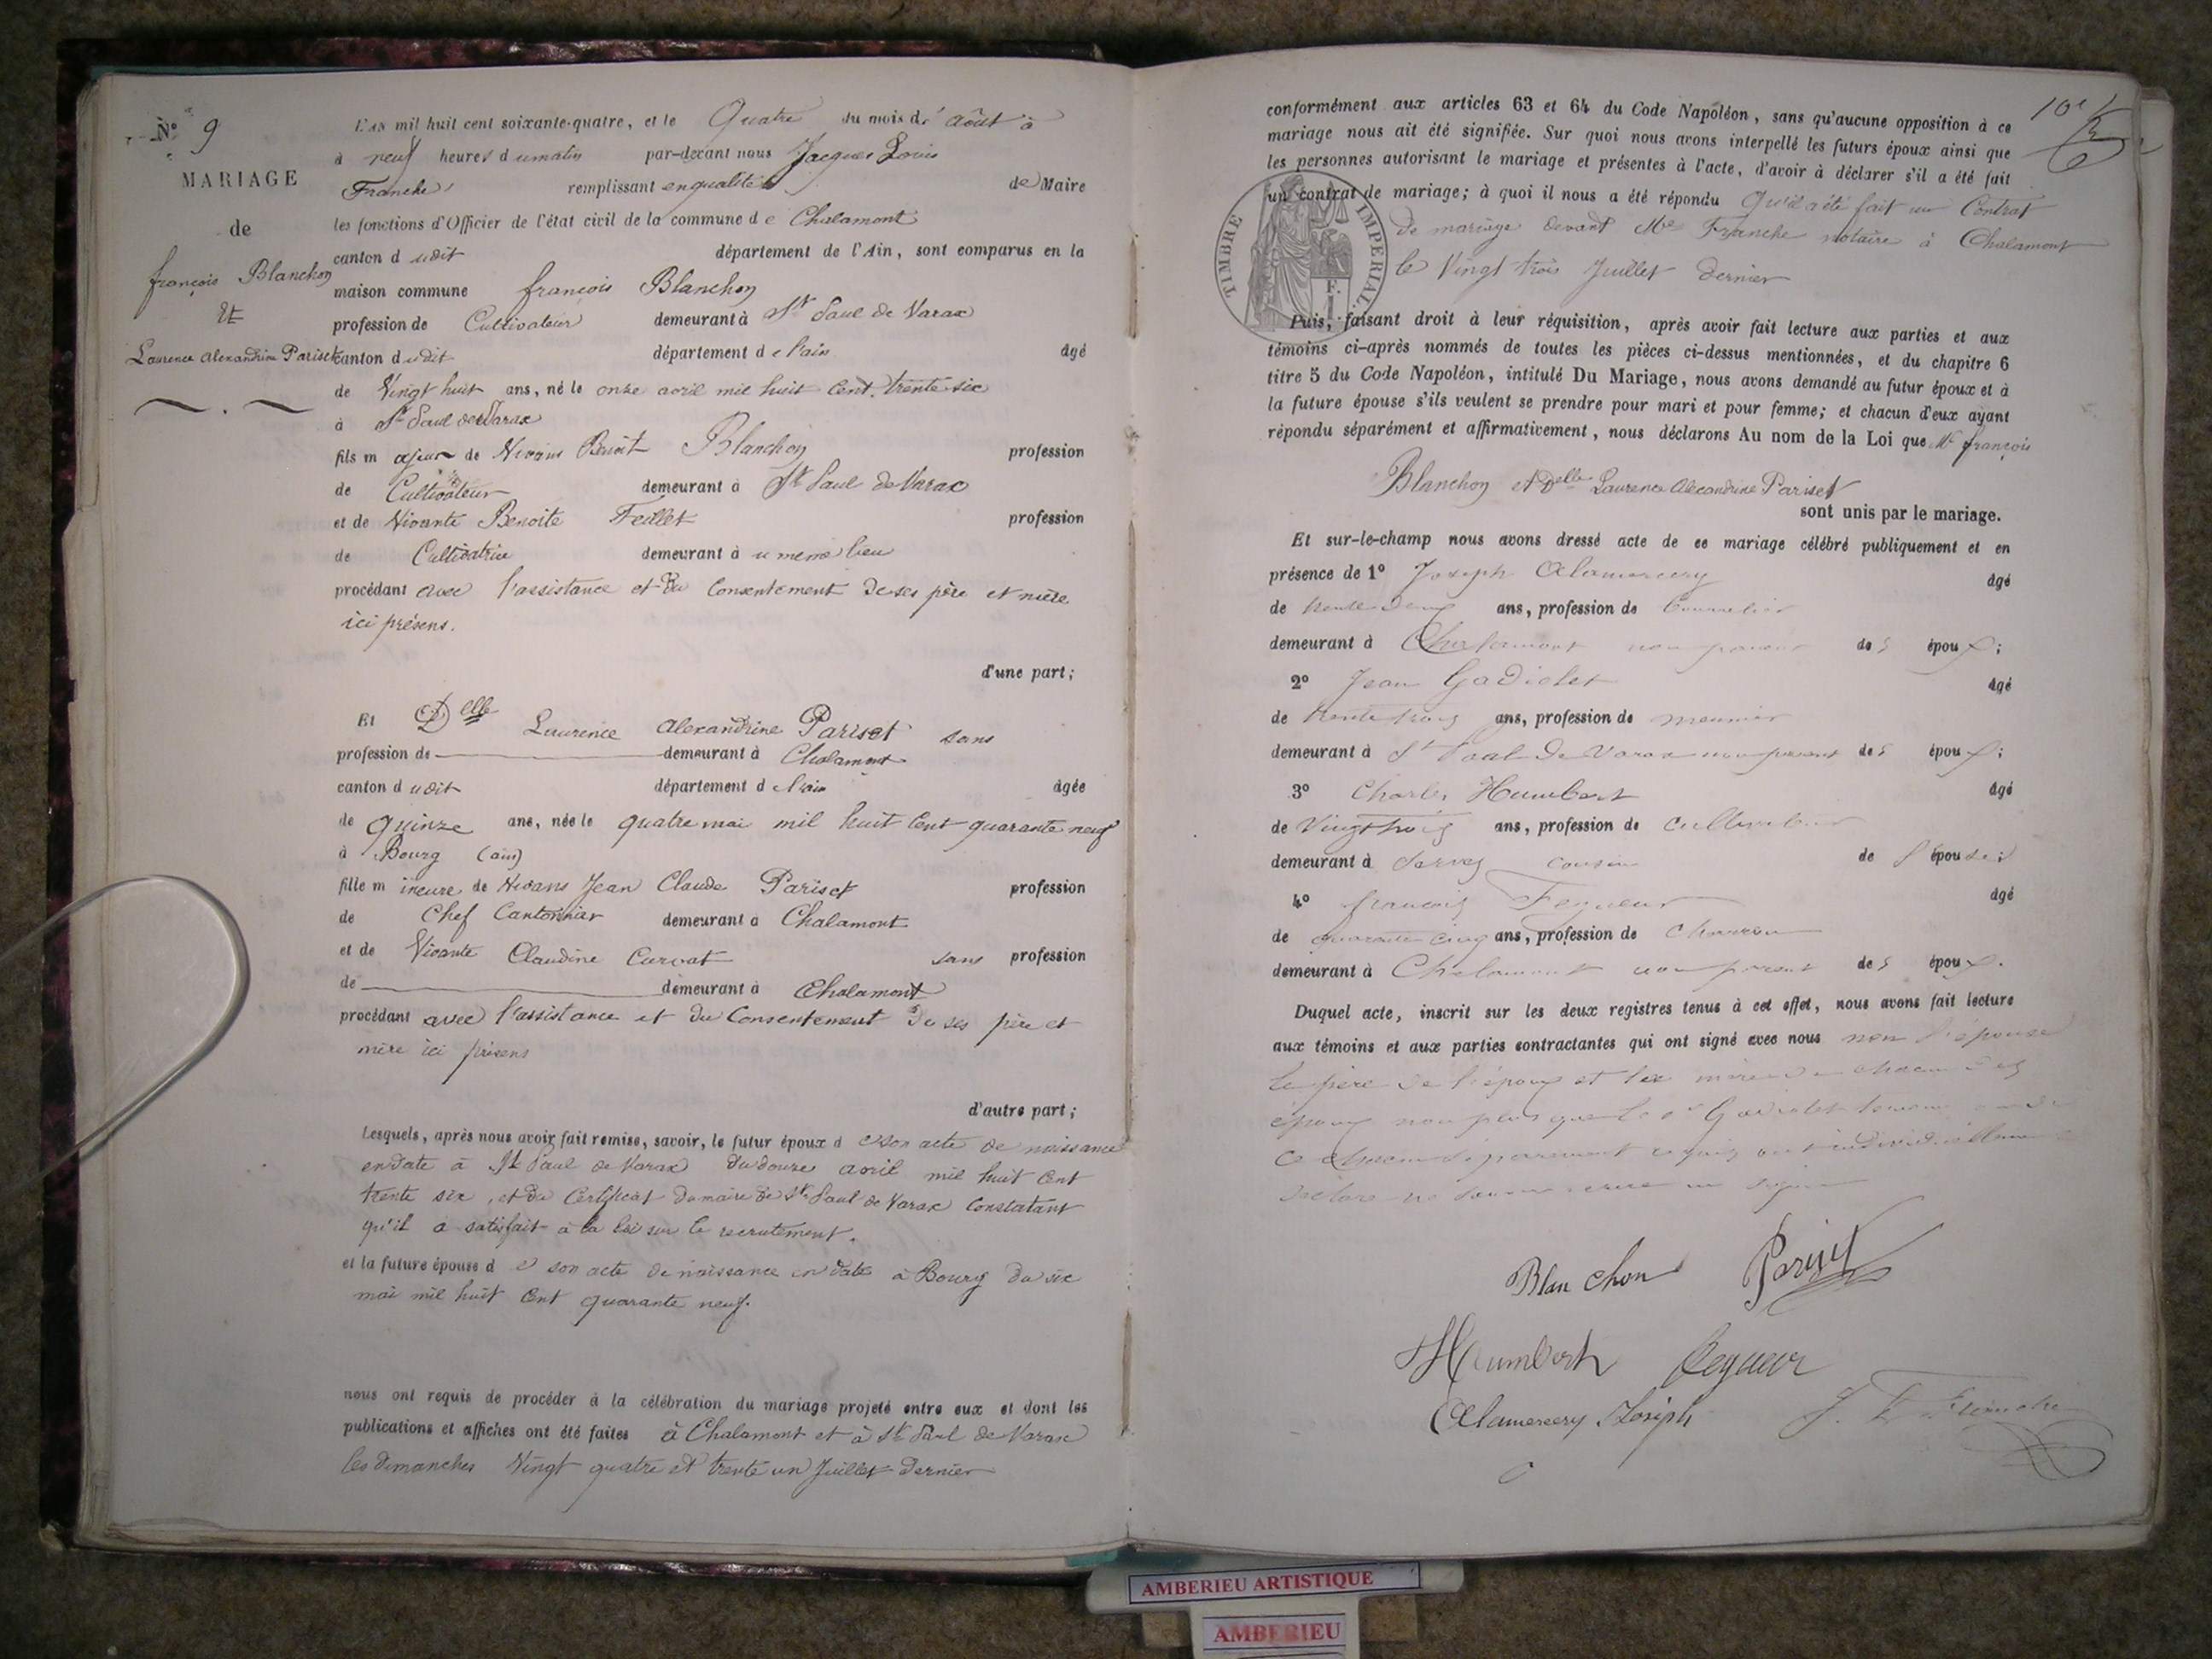 N° 9
MARIAGE
de
françois Blanchon
Et
Laurence alexandrine Pariset
L'AN mil huit cent soixante-quatre, et le Quatre du mois de août à
à neuf heures du matin par-devant nous Jacques Louis
Franche remplissant en qualité de Maire
les fonctions d'Officier de l'état civil de la commune de Chalamont
canton dudit département de l'Ain, sont comparus en la
maison commune françois Blanchon
profession de Cultivateur demeurant à St Paul de Varax
canton dudit département de l'ain âgé
de Vingt huit ans, né le onze avril mil huit Cent trente six
à St Paul de Varax
fils majeur de Vivans Benoît Blanchon profession
de Cultivateur demeurant à St Paul de Varax
et de Vivante Benoite Feillet profession
de Cultivatrice demeurant à u même lieu
procédant avec l'assistance et du Consentement de ses père et mère
ici présens.
d'une part;
Et Delle Laurence alexandrine Pariset sans
profession de demeurant à Chalamont
canton dudit département de l'ain âgée
de quinze ans, née le quatre mai mil huit Cent quarante neuf
à Bourg (ain)
fille mineure de Vivans Jean Claude Pariset profession
de Chef Cantonnier demeurant à Chalamont
et de Vivante Claudine Curvat sans profession
de demeurant à Chalamont
procédant avec l'assistance et du Consentement de ses père et
mère ici présens
d'autre part;
Lesquels, après nous avoir fait remise, savoir, le futur époux de son acte de naissance
en date à St Paul de Varax du douze avril mil huit Cent
trente six, et du Certificat du maire de St Paul de Varax Constatant
qu'il a satisfait à la loi sur le recrutement.
et la future épouse de son acte de naissance en date à Bourg du six
mai mil huit Cent quarante neuf.
nous ont requis de procéder à la célébration du mariage projeté entre eux et dont les
publications et affiches ont été faites à Chalamont et à St Paul de Varax
les dimanches Vingt quatre et trente un Juillet dernier
10e
conformément aux articles 63 et 64 du Code Napoléon, sans qu'aucune opposition à ce
mariage nous ait été signifiée. Sur quoi nous avons interpellé les futurs époux ainsi que
les personnes autorisant le mariage et présentes à l'acte, d'avoir à déclarer s'il a été fait
un contrat de mariage; à quoi il nous a été répondu Qu'il a été fait un Contrat
de mariage devant Me Franche notaire à Chalamont
le Vingt trois Juillet dernier
TIMBRE IMPÉRIAL
Puis, faisant droit à leur réquisition, après avoir fait lecture aux parties et aux
témoins ci-après nommés de toutes les pièces ci-dessus mentionnées, et du chapitre 6
titre 5 du Code Napoléon, intitulé Du Mariage, nous avons demandé au futur époux et à
la future épouse s'ils veulent se prendre pour mari et pour femme; et chacun d'eux ayant
répondu séparément et affirmativement, nous déclarons Au nom de la Loi que Mr françois
Blanchon et Delle Laurence alexandrine Pariset
sont unis par le mariage.
Et sur-le-champ nous avons dressé acte de ce mariage célébré publiquement et en
présence de 1° Joseph Alamercery âgé
de trente deux ans, profession de Bourrelier
demeurant à Chalamont non parent des époux;
2° Jean Gadiolet âgé
de trente trois ans, profession de meunier
demeurant à St Paul de Varax non parent des époux;
3° Charles Humbert âgé
de Vingt trois ans, profession de cultivateur
demeurant à Servas cousin de l'épouse;
4° françois Fegueur âgé
de quarante cinq ans, profession de Charron
demeurant à Chalamont non parent des époux.
Duquel acte, inscrit sur les deux registres tenus à cet effet, nous avons fait lecture
aux témoins et aux parties contractantes qui ont signé avec nous non l'épouse
le père de l'époux et les mères de chacun des
époux non plus que le sr Gadiolet témoin
ce chacun séparément requis ont individuellement
déclaré ne savoir écrire ni signer
Blanchon Pariset
Humbert Fegueur
Alamercery Joseph J. L. Franche
AMBERIEU ARTISTIQUE
AMBERIEU